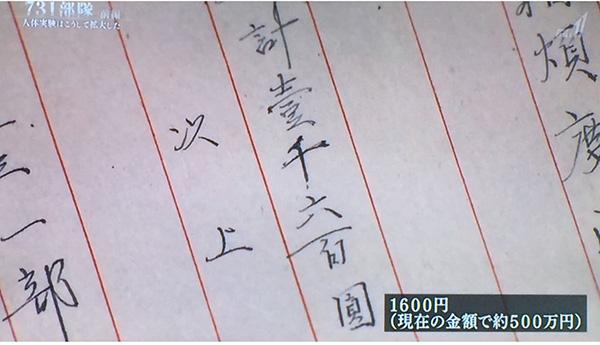 731部隊 前編
人体実験はこうして拡大した
煩度
計壹千六百圓
以上
一部
1600円
(現在の金額で約500万円)